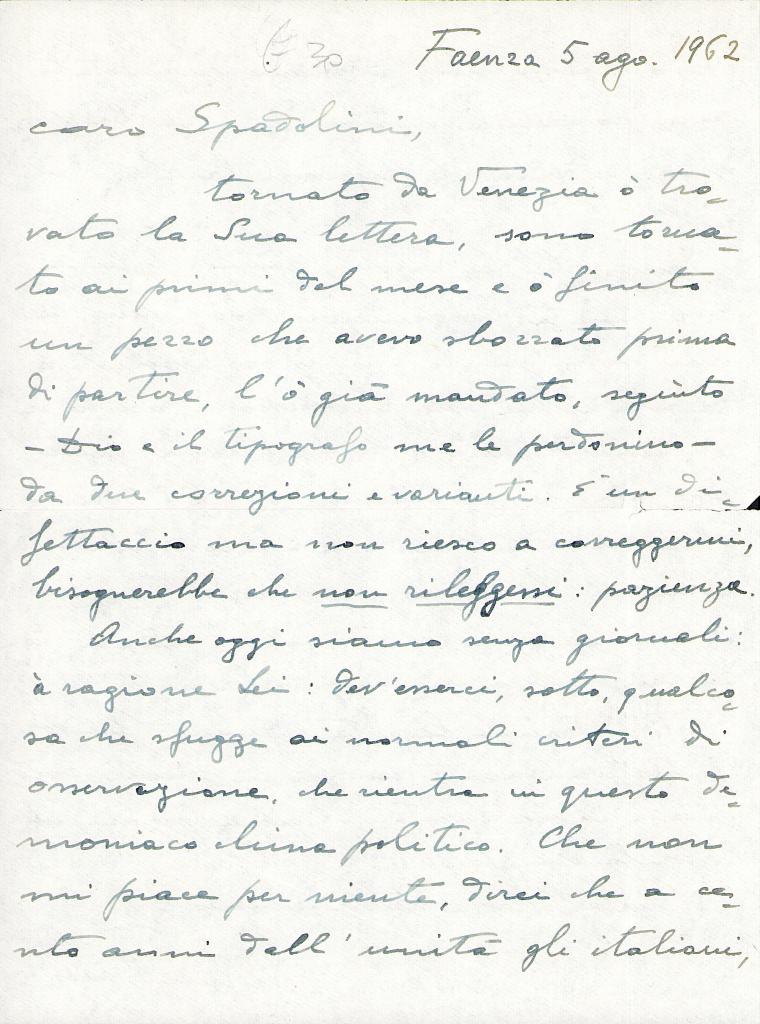 30
Faenza 5 ago. 1962
caro Spadolini,
tornato da Venezia ò tro=
vato la Sua lettera, sono torna=
to ai primi del mese e ò finito
un pezzo che avevo sbozzato prima
di partire, l'ò già mandato, seguìto
– Dio e il tipografo me le perdonino –
da due correzioni e varianti. È un di=
fettaccio ma non riesco a correggermi,
bisognerebbe che non rileggessi: pazienza.
Anche oggi siamo senza giornali:
à ragione Lei: dev'esserci, sotto, qualco=
sa che sfugge ai normali criteri di
osservazione, che rientra in questo de=
moniaco clima politico. Che non
mi piace per niente, direi che a ce=
nto anni dall'unità gli italiani,